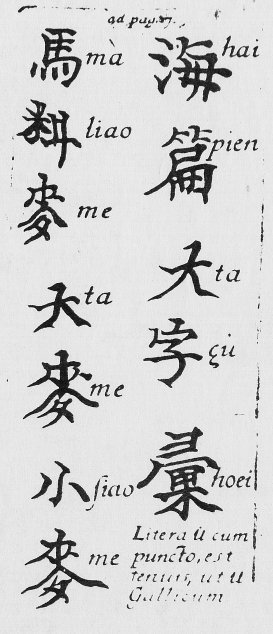 ad pag.
海 hai
篇 pien
大 ta
字 çu̇
彙 hoei
Litera u̇ cum
puncto, est
tenuis, ut u
Gallicum
馬 mà
料 liao
麥 me
大 ta
麥 me
小 ſiao
麥 me